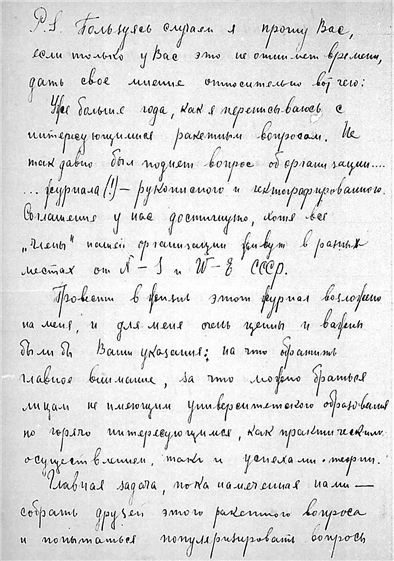 P.S. Пользуясь случаем я прошу Вас,
если только у Вас это не отнимет времени,
дать свое мнение относительно вот чего:
Уже больше года, как я переписываюсь с
интересующимися ракетным вопросом. Не
так давно был поднят вопрос об организации....
... журнала (!) — рукописного и гектографированного.
Соглашение у нас достигнуто, хотя все
„члены" нашей организации живут в разных
местах от N – S и W – E СССР.
Провести в жизнь этот журнал возложено
на меня, и для меня очень ценны и важны
были бы Ваши указания: на что обратить
главное внимание, за что можно браться
лицам не имеющим университетского образования
но горячо интересующимся, как практическим
осуществлением, так и успехами теории.
Главная задача, пока намеченная нами —
собрать друзей этого ракетного вопроса
и попытаться популяризировать вопросы